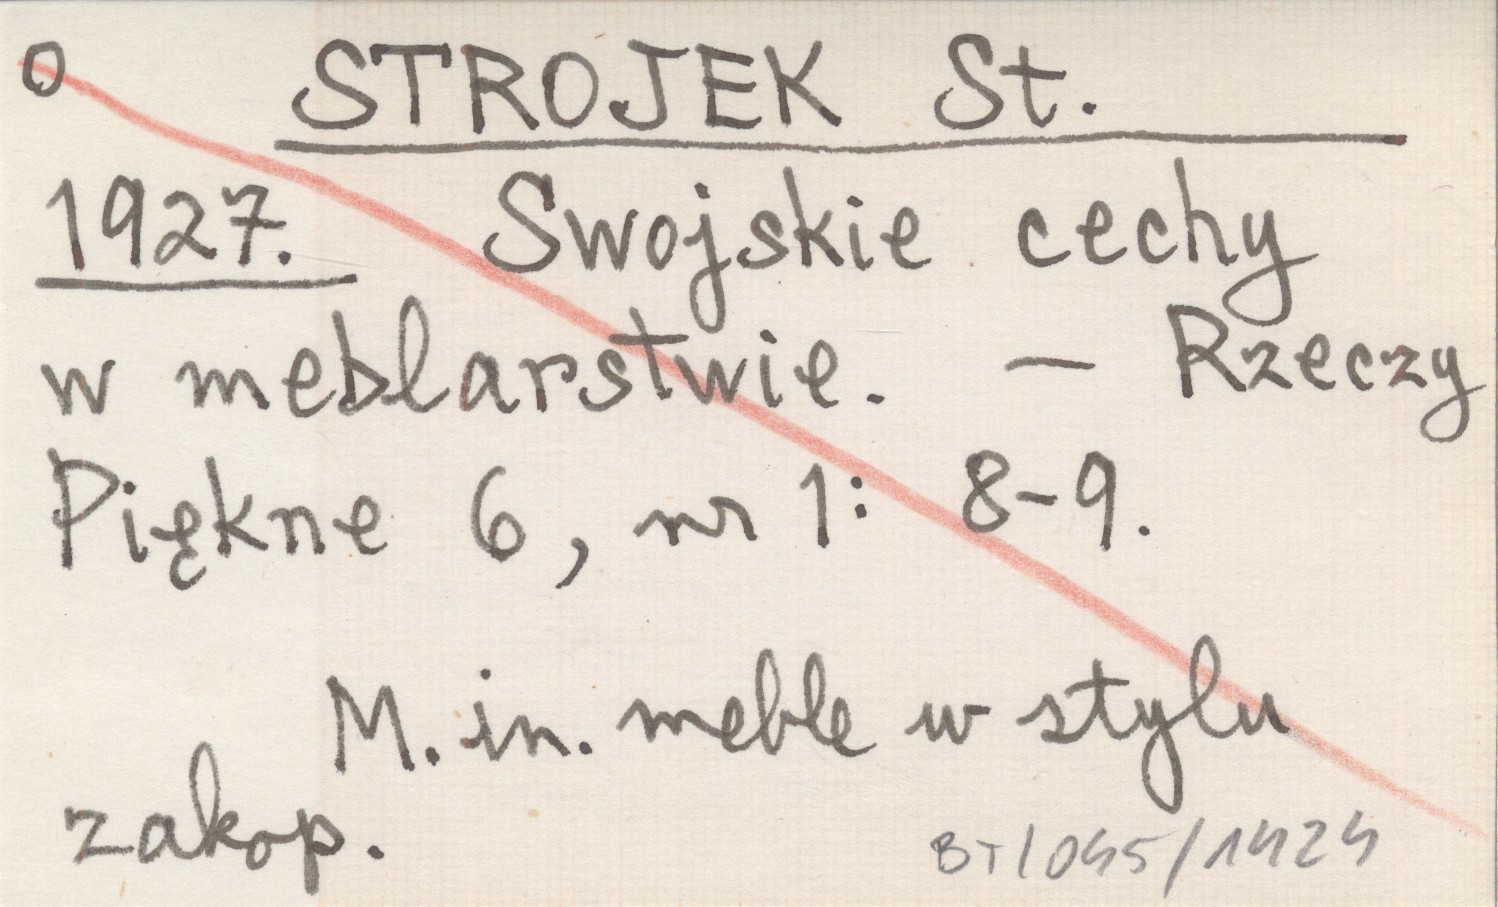 O STROJEK St.
1927. Swojskie cechy
w meblarstwie. — Rzeczy
Piękne 6, nr 1: 8-9.
M. in. meble w stylu
zakop.
BT/045/1424